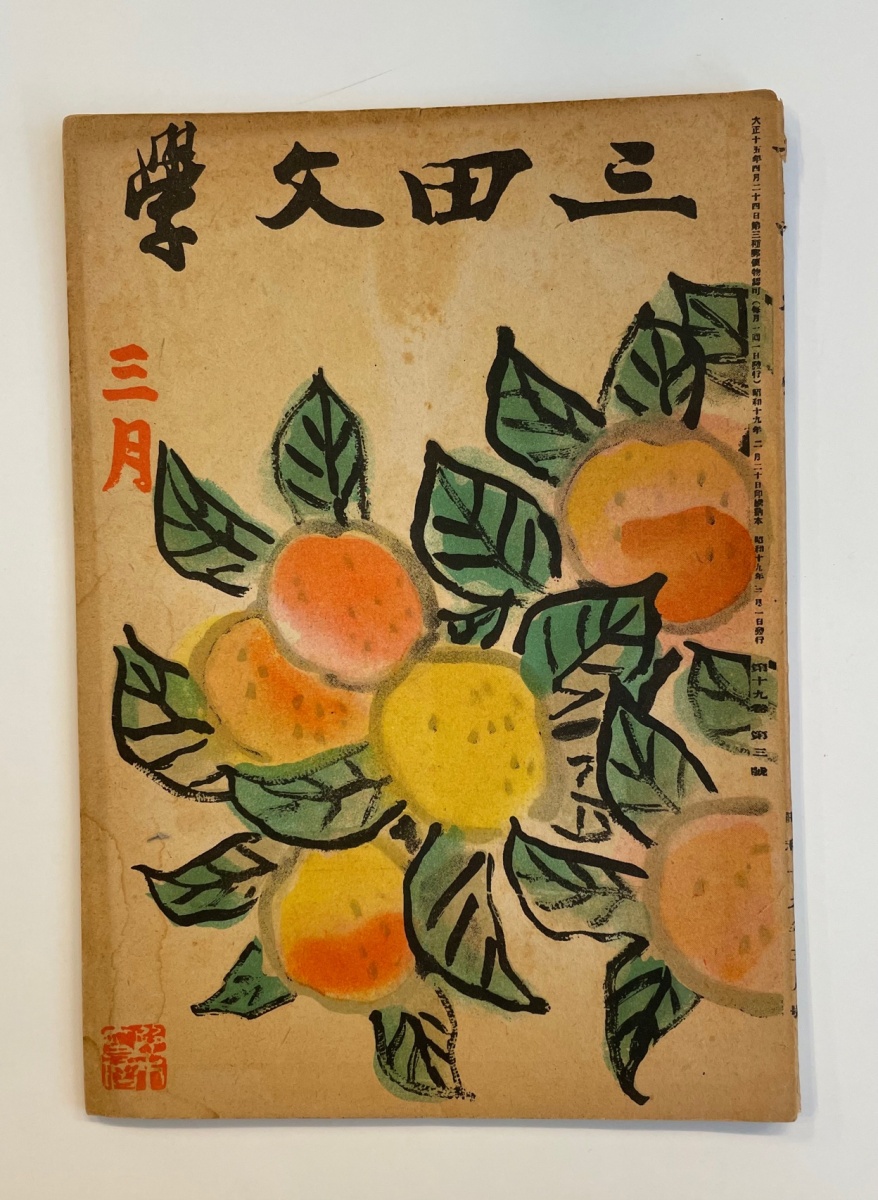 三田文學
三月
大正十五年四月二十四日第三種郵便物認可(毎月一回一日發行)昭和十九年二月二十日印刷納本 昭和十九年三月一日發行 第十九卷 第三號